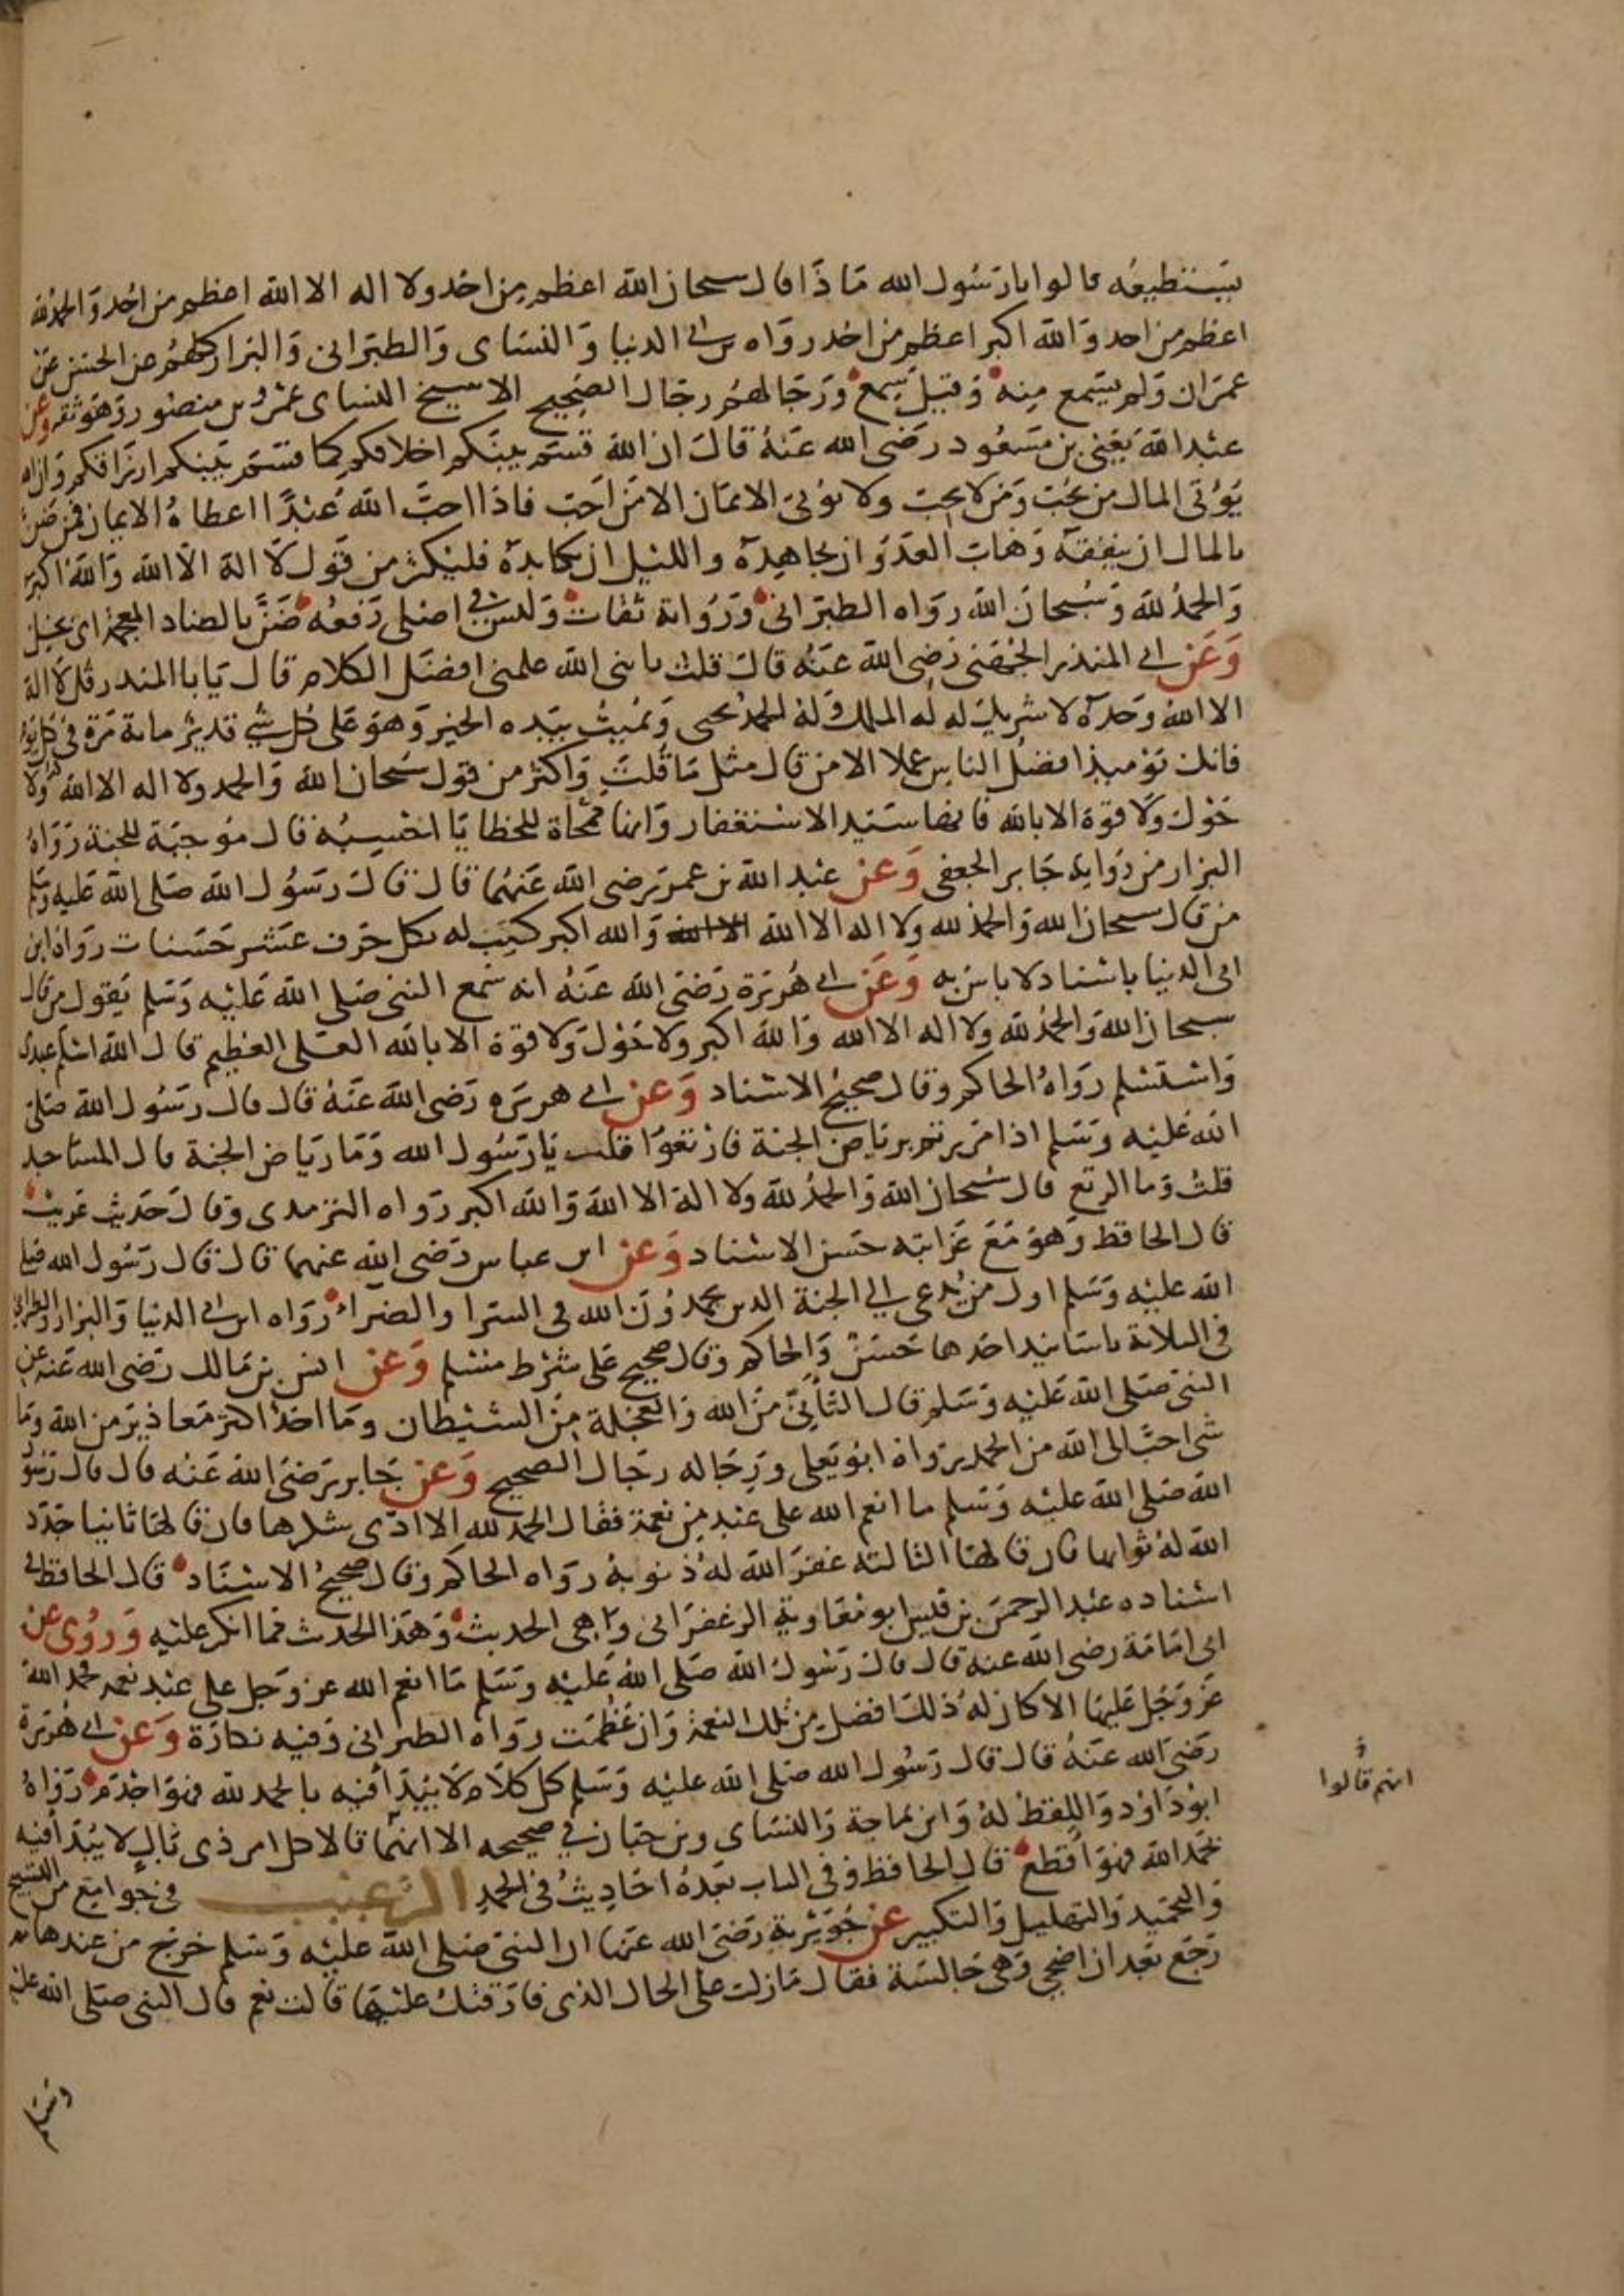 يستطيعه قالوا يا رسول الله ماذا قال سبحان الله اعظم من احد ولا اله الا الله اعظم من احد والحمد لله
اعظم من احد والله اكبر اعظم من احد رواه بن ابي الدنيا والنساى والطبرانى والبزار كلهم عن الحسن عن
عمران ولم يسمع منه وقيل سمع ورجالهم رجال الصحيح الا شيخ النساى عمرو بن منصور وهو ثقه وعن
عبد الله يعني بن مسعود رضى الله عنه قال ان الله قسم بينكم اخلاقكم كما قسم بينكم ارزاقكم وان الله
يؤتى المال من يحب ومن لا يحب ولا يؤتى الايمان الا من احب فاذا احب الله عبدا اعطاه الايمان فمن ضن
بالمال ان ينفقه وهاب العدو ان يجاهده والليل ان يكابده فليكثر من قول لا اله الا الله والله اكبر
والحمد لله وسبحان الله رواه الطبرانى ورواته ثقات وليس في اصلى رفعه ضن بالضاد المعجمة اى بخل
وعن ابى المنذر الجهنى رضى الله عنه قال قلت يا نبى الله علمنى افضل الكلام قال يا با المنذر قل لا اله
الا الله وحده لا شريك له له الملك وله الحمد يحيى ويميت بيده الخير وهو على كل شي قدير مائة مرة فى كل يوم
فانك يوميذ افضل الناس عملا الا من قال مثل ما قلت واكثر من قول سبحان الله والحمد ولا اله الا الله ولا
حول ولا قوة الا بالله فانها سيد الاستغفار وانها ممحاة للخطايا احسبه قال موجبة للجنة رواه
البزار من رواية جابر الجعفى وعن عبد الله بن عمر رضى الله عنهما قال قال رسول الله صلى الله عليه وسلم
من قال سبحان الله والحمد لله ولا اله الا الله الا الله والله اكبر كتب له بكل حرف عشر حسنات رواه ابن
ابى الدنيا باسناد لا باس به وعن ابى هريرة رضى الله عنه انه سمع النبى صلى الله عليه وسلم يقول من قال
سبحان الله والحمد لله ولا اله الا الله والله اكبر ولا حول ولا قوة الا بالله العلى العظيم قال الله اسلم عبدى
واستسلم رواه الحاكم وقال صحيح الاسناد وعن ابى هريره رضى الله عنه قال قال رسول الله صلى
الله عليه وسلم اذا مررتم برياض الجنة فارتعوا قلت يا رسول الله وما رياض الجنة قال المساجد
قلت وما الرتع قال سبحان الله والحمد لله ولا اله الا الله والله اكبر رواه الترمدى وقال حديث غريب
قال الحافظ وهو مع غرابته حسن الاسناد وعن ابن عباس رضى الله عنهما قال قال رسول الله صلى
الله عليه وسلم اول من يدعى الى الجنة الدين يحمدون الله فى السرا والضراء رواه ابن ابى الدنيا والبزار والطبرانى
فى الثلاثة باسانيد احدها حسن والحاكم وقال صحيح على شرط مسلم وعن انس بن مالك رضى الله عنه عن
النبى صلى الله عليه وسلم قال التأني من الله والعجلة من الشيطان وما احد اكثر معاذير من الله وما
شى احب الى الله من الحمد رواه ابو يعلى ورجاله رجال الصحيح وعن جابر رضى الله عنه قال قال رسول
الله صلى الله عليه وسلم ما انعم الله على عبد من نعمة فقال الحمد لله الا ادى شكرها فان قالها ثانيا جدد
الله له ثوابها فان قالها الثالثه غفر الله له ذنوبه رواه الحاكم وقال صحيح الاسناد قال الحافظ فى
اسناده عبد الرحمن بن قيس ابو معاوية الزعفرانى واهى الحديث وهذا الحدث مما انكر عليه وروى عن
ابى امامة رضى الله عنه قال قال رسول الله صلى الله عليه وسلم ما انعم الله عز وجل على عبد نعمه فحمد الله
عز وجل عليها الا كان له ذلك افضل من تلك النعمة وان عظمت رواه الطبرانى وفيه نكارة وعن ابى هريرة
رضى الله عنه قال قال رسول الله صلى الله عليه وسلم كل كلام لا يبدأ فيه بالحمد لله فهو اجذم رواه
ابو داود واللفظ له وابن ماجة والنساى وبن حبان في صحيحه الا انهما قالا كل امر ذى بال لا يبدأ فيه
بحمد الله فهو اقطع قال الحافظ وفى الباب بعده احاديث فى الحمد الترغيب فى جوامع من التسبيح
والتحميد والتهليل والتكبير عن جويرية رضى الله عنها ان النبى صلى الله عليه وسلم خرج من عندها ثم
رجع بعد ان اضحى وهى جالسة فقال ما زلت على الحال الذى فارقتك عليها قالت نعم قال النبى صلى الله عليه
انهم قالوا